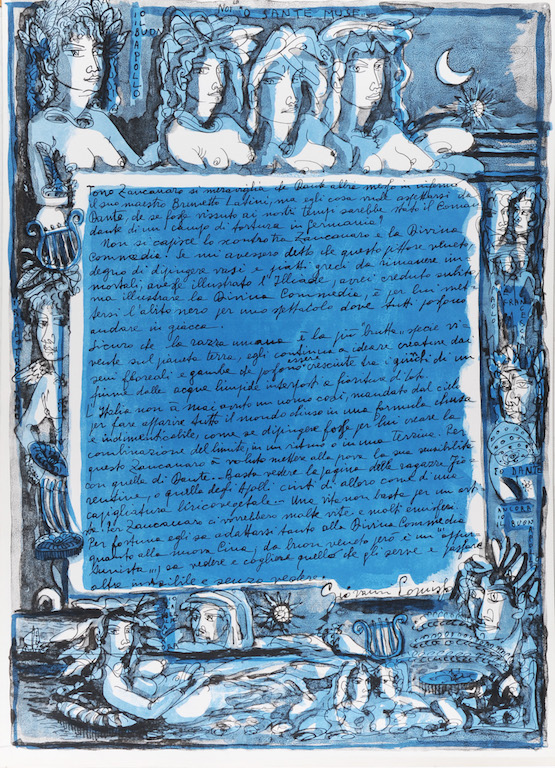 Noi o SANTE MUSE
IL BUON APOLLO
Tono Zancanaro si meraviglia che Dante abbia messo in inferno
il suo maestro Brunetto Latini, ma egli cosa può aspettarsi da
Dante, che se fosse vissuto ai nostri tempi sarebbe stato il coman
dante di un campo di tortura in Germania?
Non si capisce lo scontro tra Zancanaro e la Divina
Commedia! Se mi avessero detto che questo pittore veneto,
degno di dipingere vasi e piatti greci da rimanere im
mortali, avesse illustrato l'Illiade, avrei creduto subito
ma illustrare la Divina Commedia, è per lui met
tersi l'alito nero per uno spettacolo dove tutti possono
andare in giacca.
Sicuro che la razza umana è la più brutta specie vi
vente sul pianeta terra, egli continua a ideare creature dai
seni floreali e gambe che possono essere cresciute tra i di un
fiume dalle acque limpide interposti a fioriture di loti.
L'Italia non à mai avuto un uomo così, mandato dal cielo
per fare apparire tutto il mondo chiuso in una formula chiusa
e indimenticabile, come se dipingere fosse per lui creare la
combinazione del limite, in un ritmo o in una Terzina. Per
questo Zancanaro à voluto mettere alla prova la sua sensibilità
con quella di Dante. Basta vedere la pagina delle ragazze fio
rentine, o quella degli Apolli cinti di alloro come d'un
capigliatura lirico vegetale... Una vita non basta per un arti
sta. Per Zancanaro ci vorrebbero molte vite e molti emisferi
Per fortuna egli sa adattarsi tanto alla Divina Commedia
quanto alla nuova Cina, da buon veneto però è un
sa vedere e cogliere quello che gli serve e
altre invisibile e senza
Giovanni
PAOLO
FRANCESCA
IO DANTE
ANCORA
IL BUON